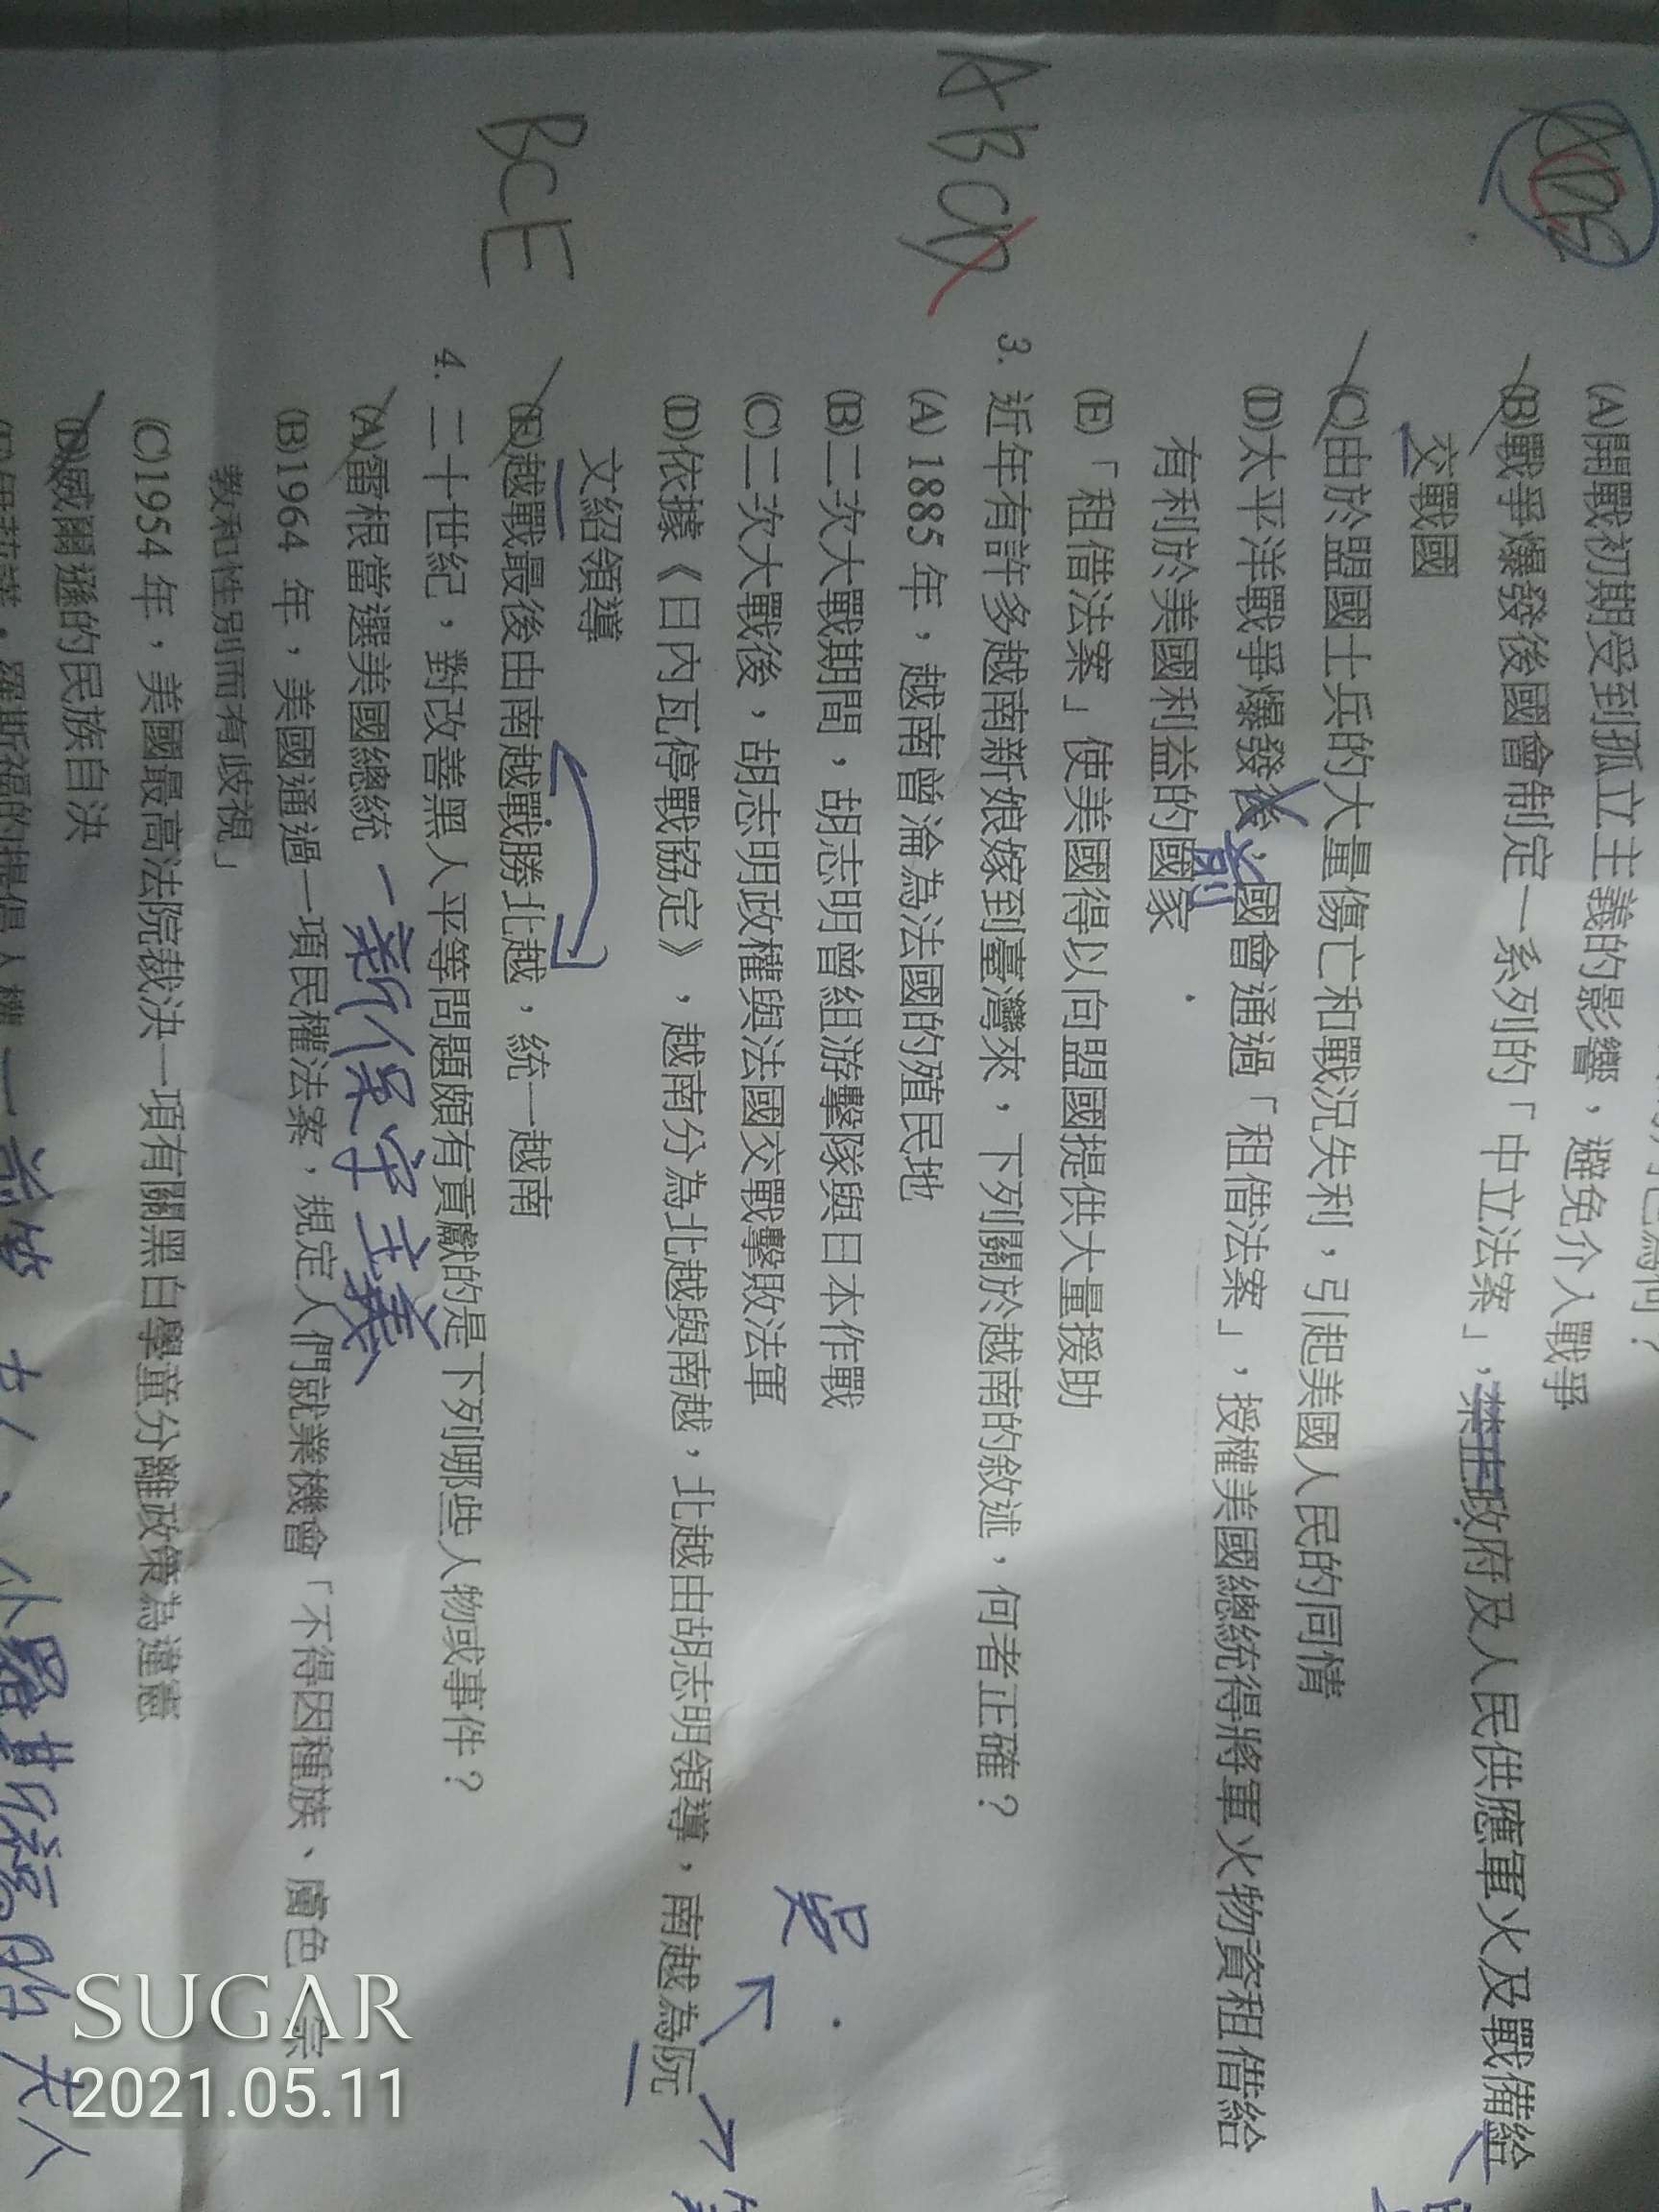 (A)開戰初期受到孤立主義的影響，避免介入戰爭
(B)戰爭爆發後國會制定一系列的「中立法案」，禁止政府及人民供應軍火及戰備給
交戰國
(C)由於盟國士兵的大量傷亡和戰況失利，引起美國人民的同情
(D)太平洋戰爭爆發後，國會通過「租借法案」，授權美國總統得將軍火物資租借給
前
有利於美國利益的國家
(E)「租借法案」使美國得以向盟國提供大量援助
ABCD
3. 近年有許多越南新娘嫁到臺灣來，下列關於越南的敘述，何者正確？
(A) 1885 年，越南曾淪為法國的殖民地
(B)二次大戰期間，胡志明曾組游擊隊與日本作戰
(C)二次大戰後，胡志明政權與法國交戰擊敗法軍
(D)依據《日內瓦停戰協定》，越南分為北越與南越，北越由胡志明領導，南越為阮
文紹領導
吳
(E)越戰最後由南越戰勝北越，統一越南
BCE
4. 二十世紀，對改善黑人平等問題頗有貢獻的是下列哪些人物或事件？
(A)雷根當選美國總統 － 新保守主義
(B)1964 年，美國通過一項民權法案，規定人們就業機會「不得因種族、膚色、宗
教和性別而有歧視」
(C)1954 年，美國最高法院裁決一項有關黑白學童分離政策為違憲
(D)威爾遜的民族自決
羅斯福的提倡人權
小羅斯福的夫人
SUGAR
2021.05.11